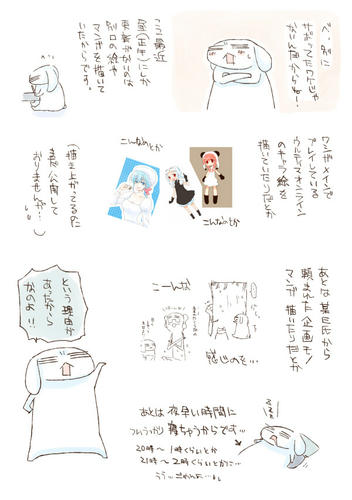 べ、別に
サボってたワケじゃ
ないんだからね!
ここ最近
昼(正午)にしか
更新がないのは
別口の絵や
マンガを描いて
いたからです。
ワシがメインで
プレイしている
ウルティマオンライン
のキャラ絵を
描いていたりだとか
こんなのとか
こんなのとか
(描き上がってるのに
まだ公開して
おりませんが…)
あとな某氏から
頼まれた企画モノ
マンガ描いたりだとか
こーんな
感じのを…
という理由が
あったから
なのよ!!
あとは夜早い時間に
ついうっかり寝ちゃうからです…
20時〜1時くらいとか
21時〜2時くらいとかに…